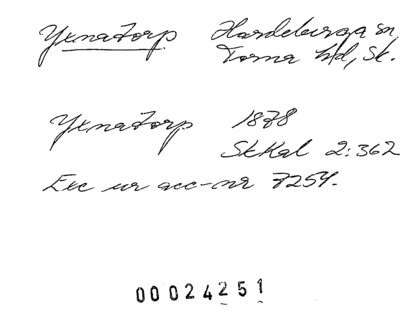 Yxnatorp Hardeberga sn,
Torna hd, Sk.
Yxnatorp 1878
SkKal 2:362
Exc ur acc-nr 7254.
00024251